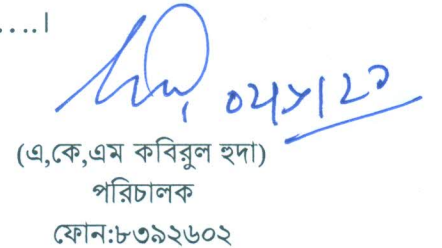 .....।
(এ,কে,এম কবিরুল হুদা)
পরিচালক
ফোন:৮৩৯২৬০২